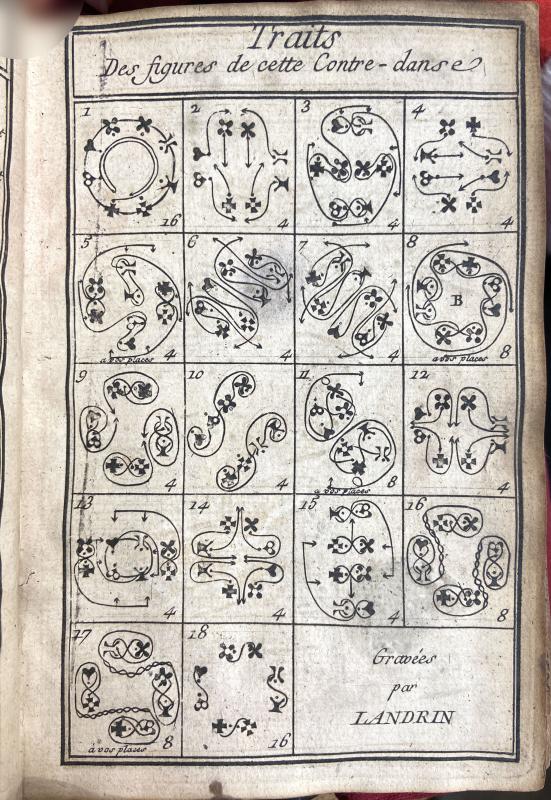 Traits
Des figures de cette Contre-danse
1 2 3 4
16 4 4 4
5 6 7 8
B
a vos places 4 4 4 avos places 8
9 10 11 12
4 4 8 4
a vos places
13 14 15 16
4 4 4 8
17 18
Gravées
par
LANDRIN
16
a vos places 8